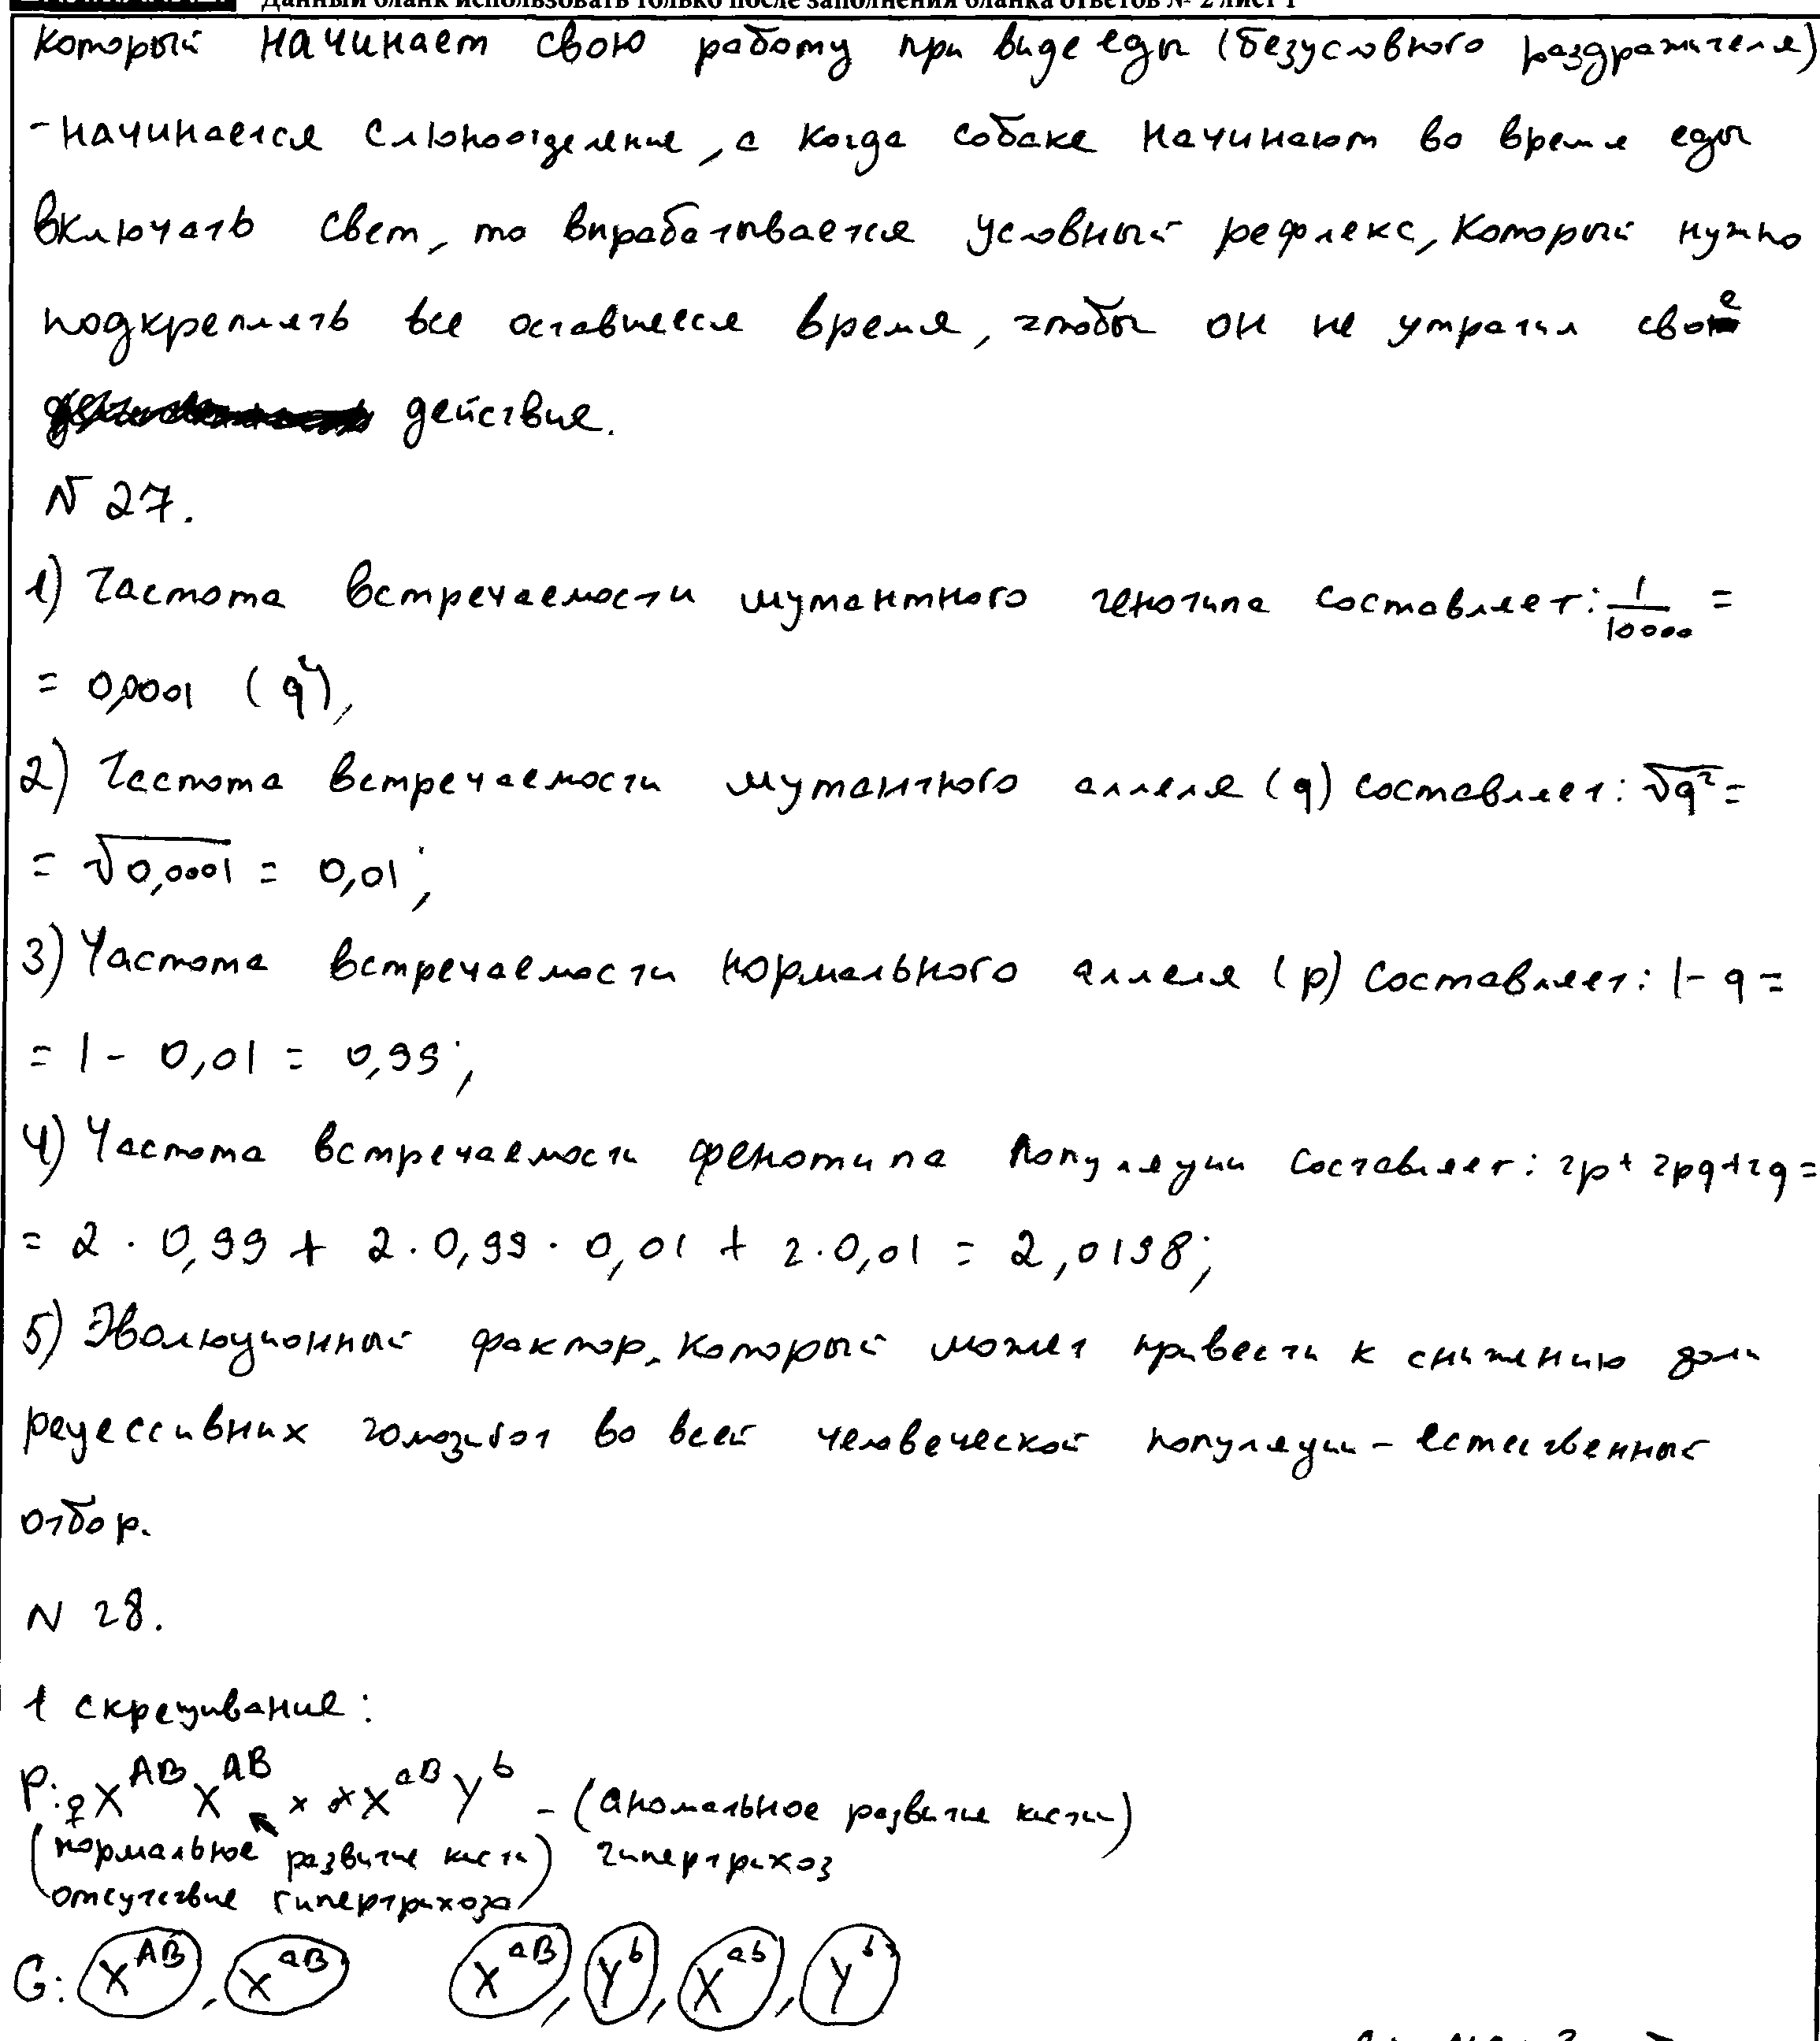 Данный бланк использовать только после заполнения бланка ответов № 2 лист 1
который начинает свою работу при виде еды (безусловного раздражителя)
- начинается слюноотделение, а когда собаке начинают во время еды
включать свет, то вырабатывается условный рефлекс, который нужно
подкреплять все оставшееся время, чтобы он не утратил свое
действие.
N 27.
1) Частота встречаемости мутантного генотипа составляет: 1/10000 =
= 0,0001 (q²),
2) Частота встречаемости мутантного аллеля (q) составляет: √q² =
= √0,0001 = 0,01;
3) Частота встречаемости нормального аллеля (p) составляет: 1 - q =
= 1 - 0,01 = 0,99;
4) Частота встречаемости фенотипа популяции составляет: 2p + 2pq + 2q =
= 2 · 0,99 + 2 · 0,99 · 0,01 + 2 · 0,01 = 2,0198;
5) Эволюционный фактор, который может привести к снижению доли
рецессивных гомозигот во всей человеческой популяции - естественный
отбор.
N 28.
1 скрещивание:
P: ♀ X^AB X^AB × ♂ X^aB Y^b - (аномальное развитие кисти)
(нормальное развитие кисти) гипертрихоз
отсутствие гипертрихоза)
G: X^AB, X^aB X^aB, Y^b, X^ab, Y^b